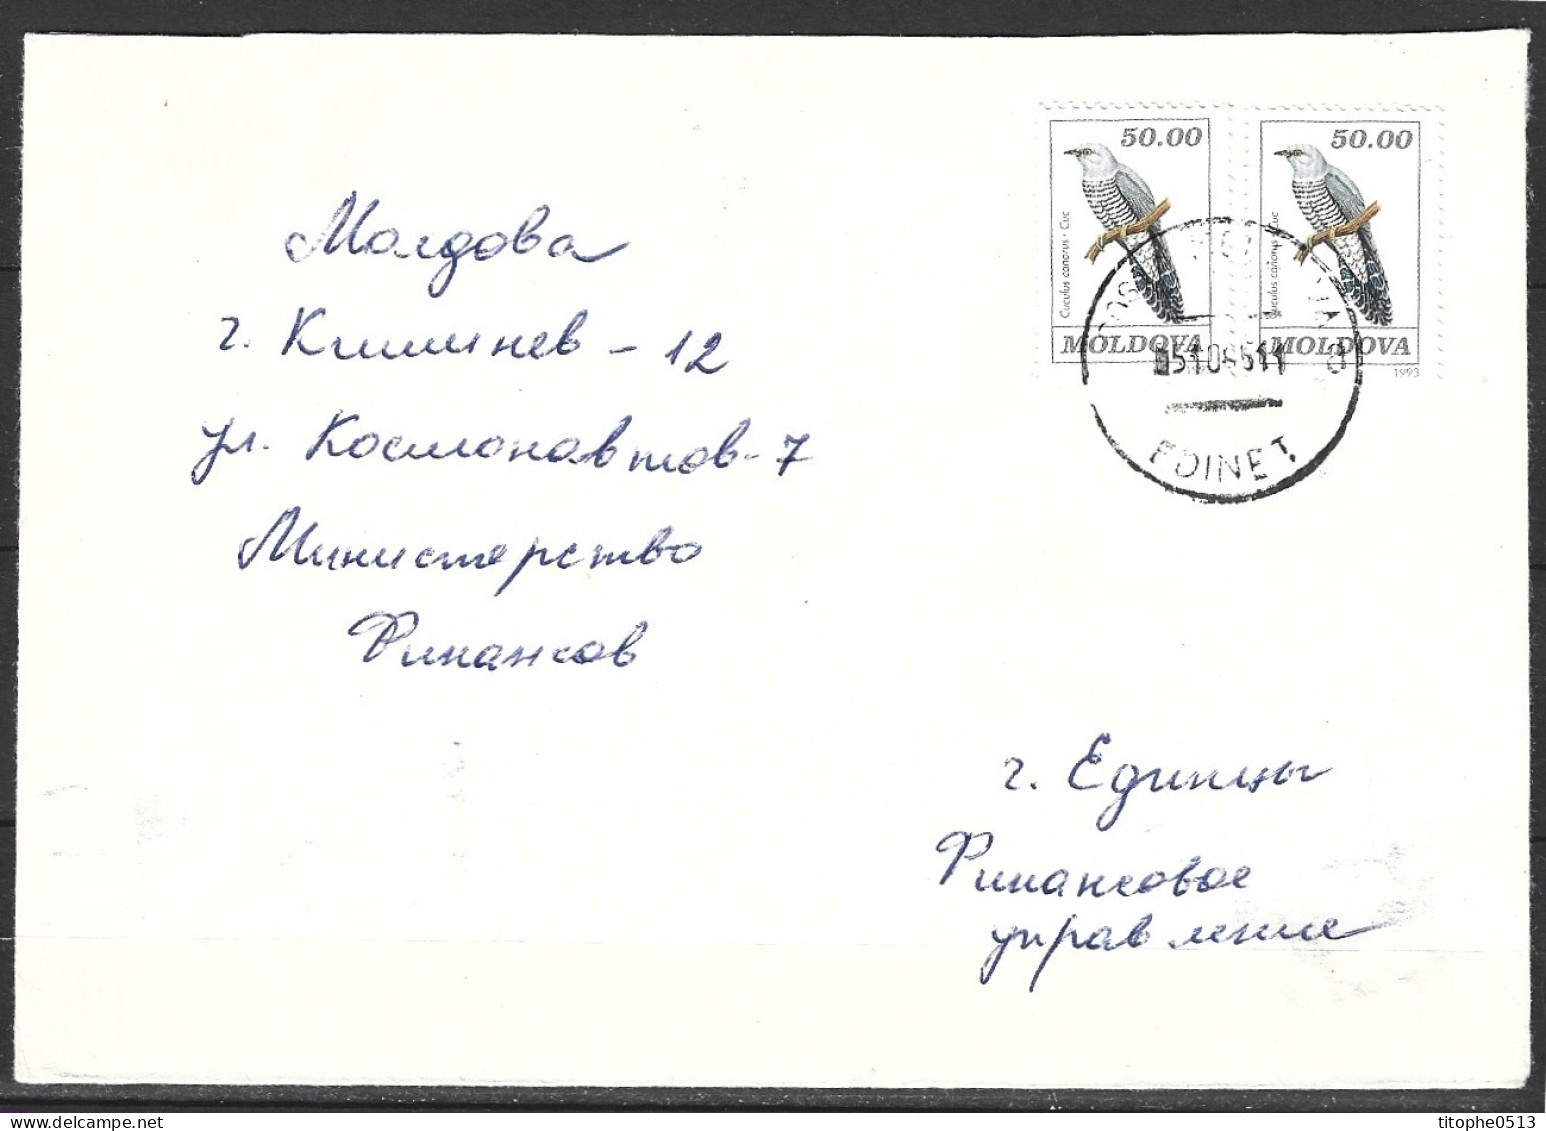 50.00
Cuculus canorus · Cuc
MOLDOVA
50.00
Cuculus canorus · Cuc
MOLDOVA
1993
EDINEȚ
Молдова
г. Кишинев - 12
ул. Космонавтов - 7
Министерство
Финансов
г. Единцы
Финансовое
управление
titophe0513